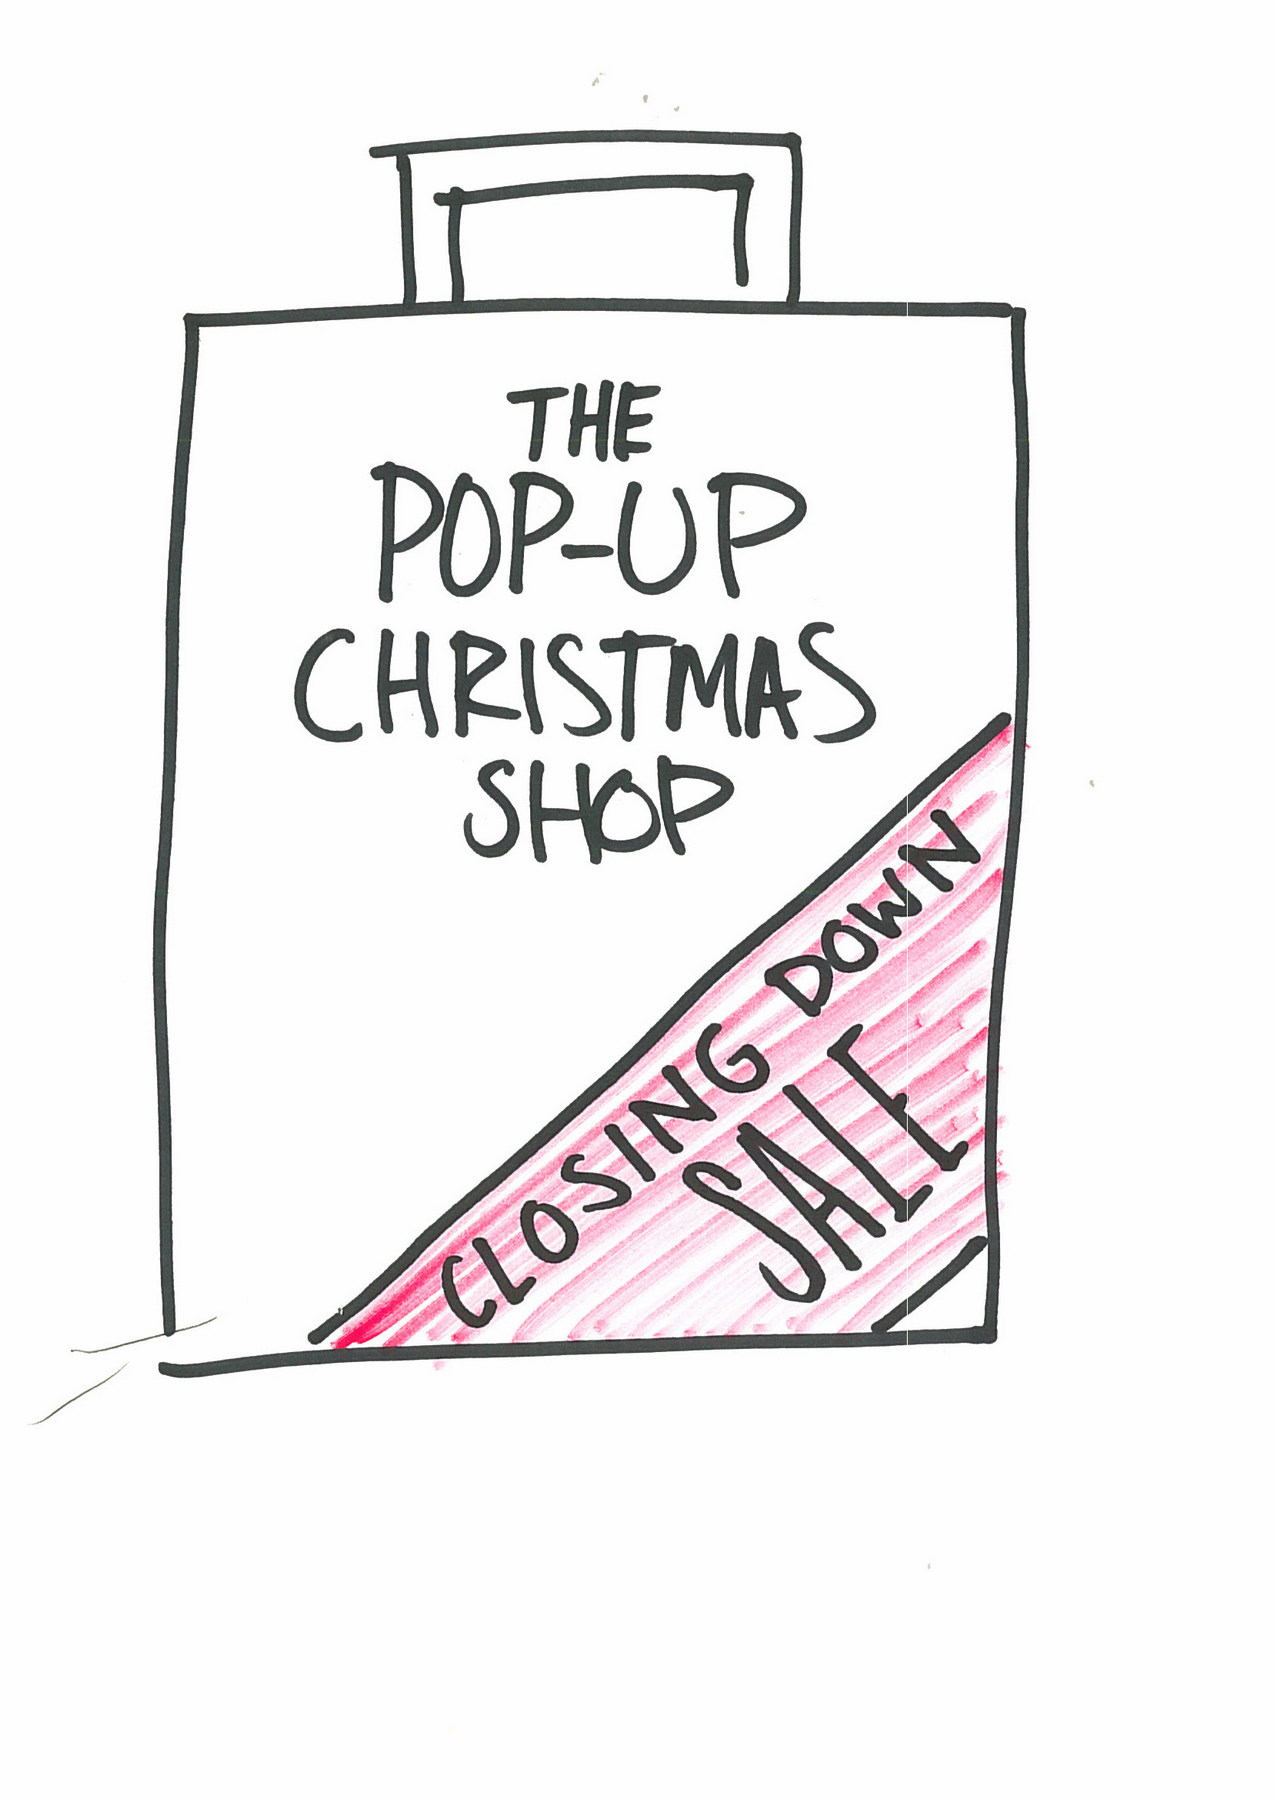 THE
POP-UP
CHRISTMAS
SHOP
CLOSING DOWN
SALE